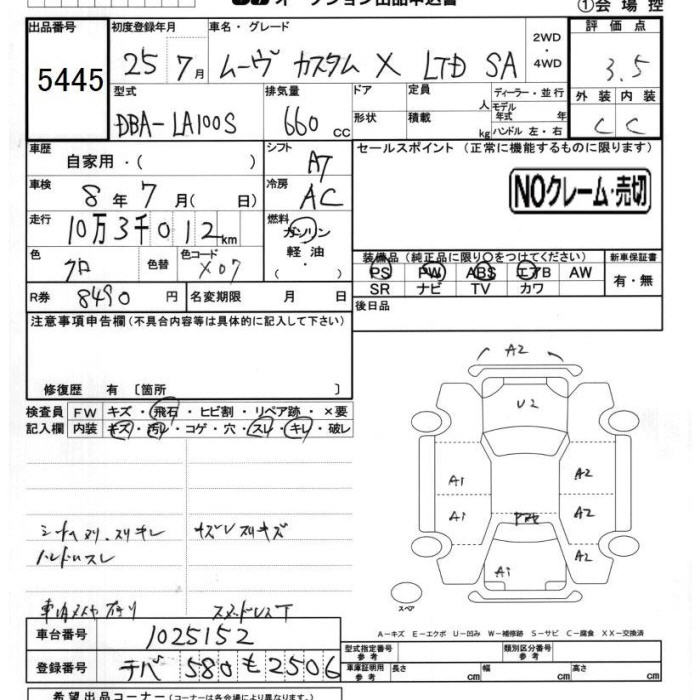 オークション出品申込書
①会場控
出品番号 初度登録年月 車名・グレード 2WD・4WD 評価点
5445 25年7月 ムーヴ カスタム X LTD SA 3.5
型式 排気量 ドア 定員 人 ディーラー・並行 外装 内装
DBA-LA100S 660cc 形状 積載 kg モデル年式 年式 ハンドル 左・右 C C
車歴 自家用・( ) シフト AT セールスポイント (正常に機能するものに限ります)
車検 8年7月( 日) 冷房 AC NOクレーム・売切
走行 10万3千012km 燃料 ガソリン 軽油・( )
色 クロ 色替 色コード X07
装備品 (純正品に限り○をつけてください) 新車保証書
PS PW ABS エアB AW 有・無
SR ナビ TV カワ
R券 8490円 名変期限 月 日 後日品
注意事項申告欄 (不具合内容等は具体的に記入して下さい)
修復歴 有 [箇所 ]
検査員 FW キズ・飛石・ヒビ割・リペア跡・×要
記入欄 内装 キズ・汚レ・コゲ・穴・スレ・キレ・破レ
A2
U2
A1 A2
A1 A2
A1
スペア
キズ
ハンドルスレ
A-キズ E-エクボ U-凹み W-補修跡 S-サビ C-腐食 XX-交換済
車台番号 1025152
登録番号 チバ 580 も 2506
型式指定番号 参考 類別区分番号 参考
車庫証明用 参考 長さ cm 幅 cm 高さ cm
希望出品コーナー (コーナーは各会場により異なります。)